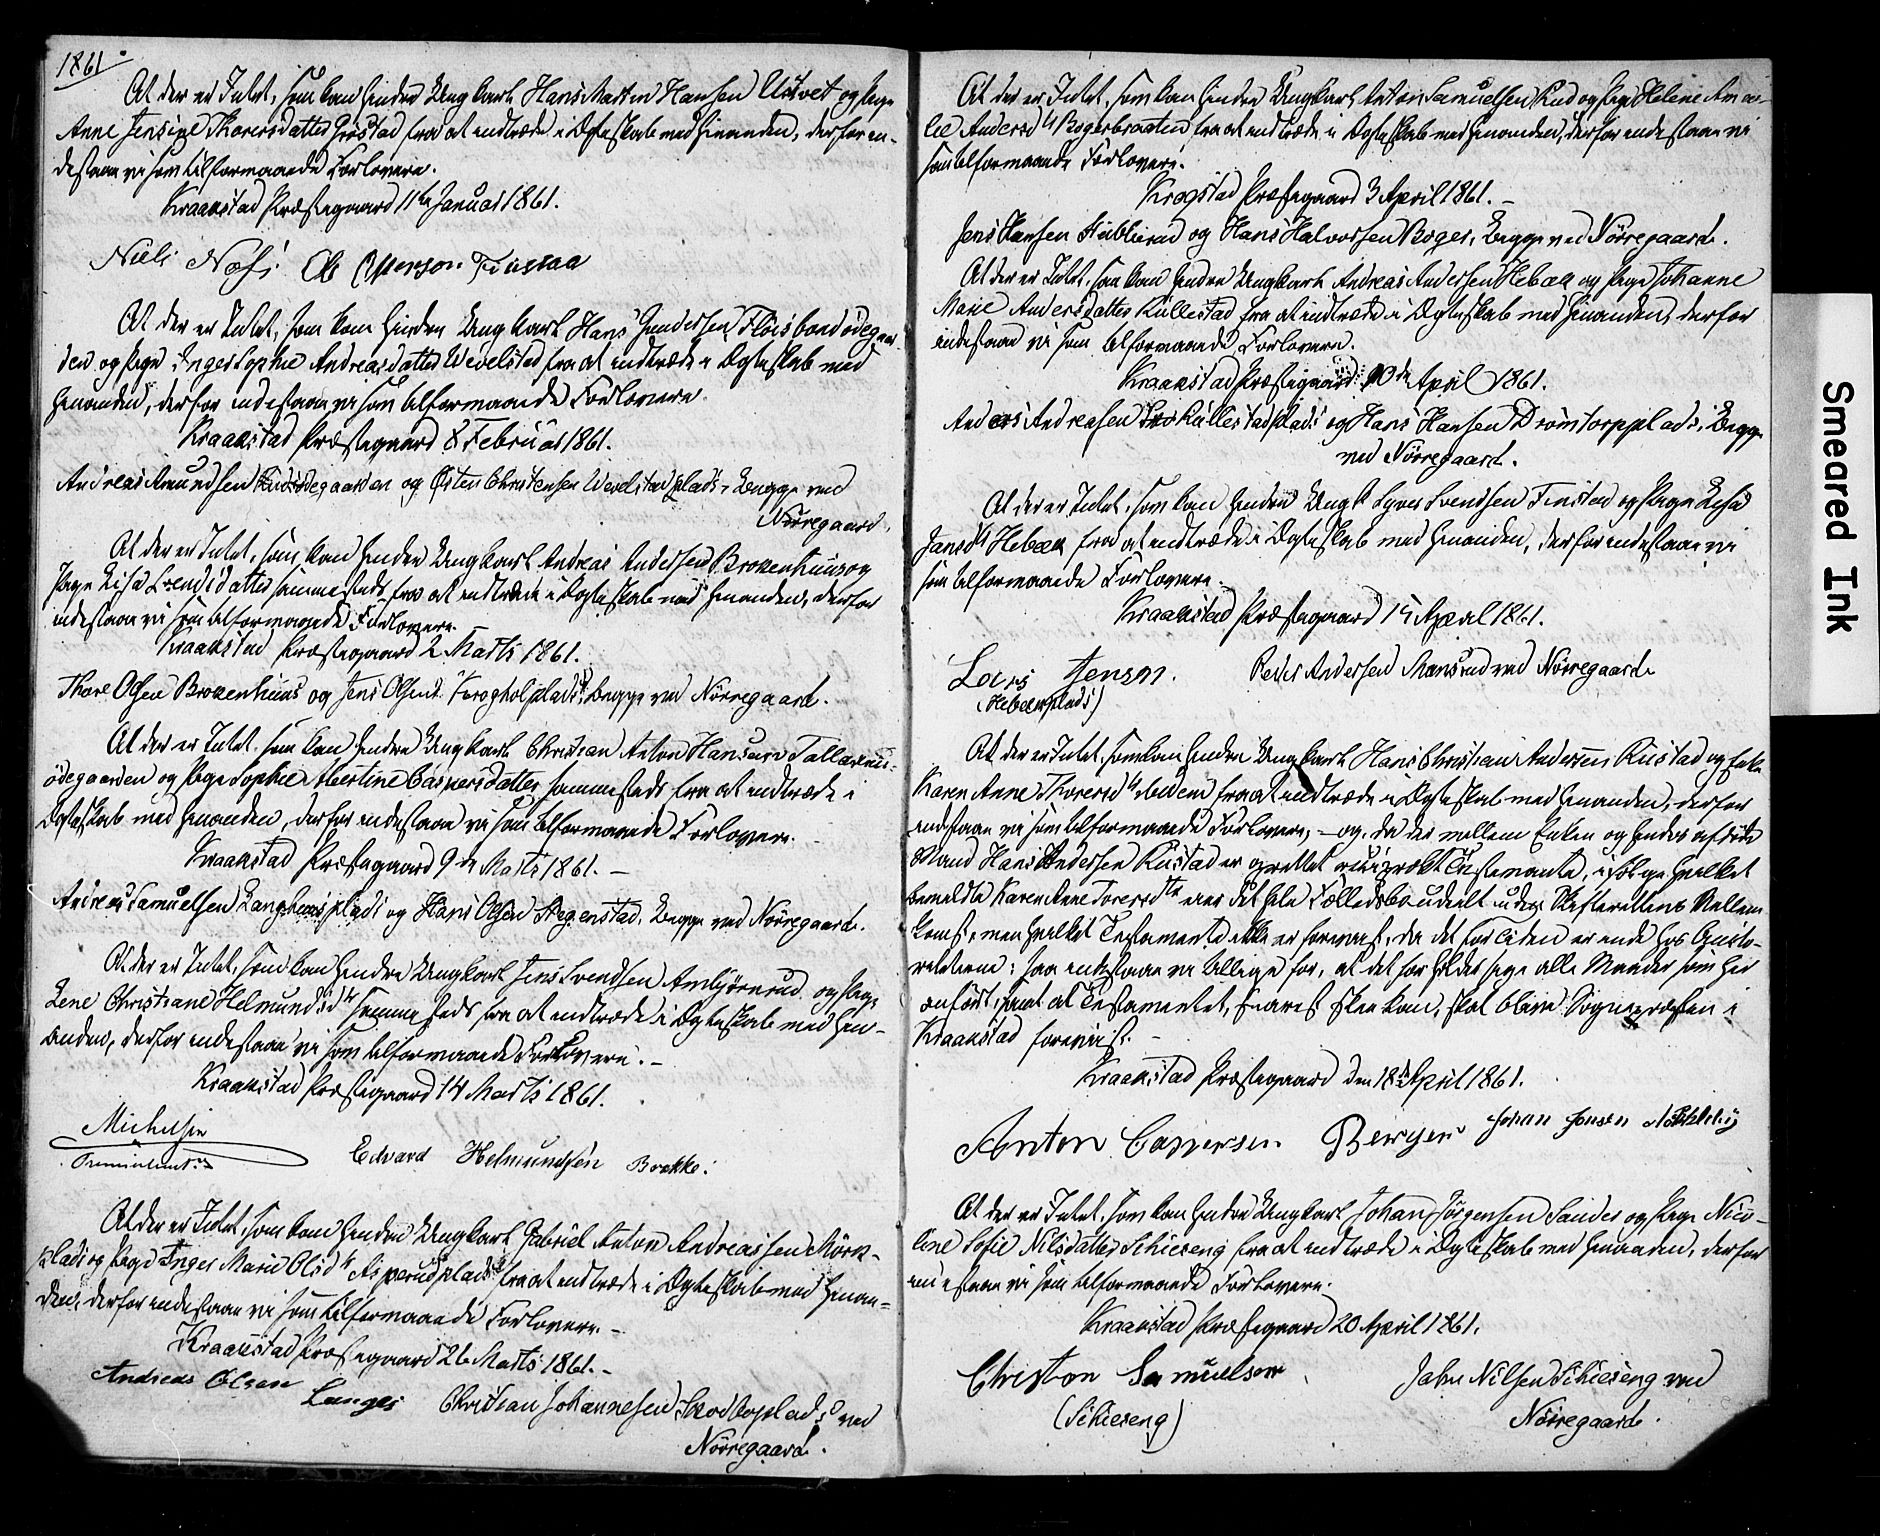 1861
At der er Intet, som kan hindre Ungkarl Hans Martin Hansen Ustvet og Pige
Anne Jensine Thoresdatter fra at indtræde i Ægteskab med hinanden, derfor in-
destaae vi som tilformaaende Forlovere.
Kraakstad Præstegaard 11te Januar 1861.
Niels Næss. Ole Finstad
At der er Intet, som kan hindre Ungkarl Hans Gundersen Fløisbondødegaar-
den og Pige Inger Sophie Andreasdatter Wevelstad fra at indtræde i Ægteskab med
hinanden, derfor indestaae vi som tilformaaende Forlovere.
Kraakstad Præstegaard 8 Februar 1861.
Andreas Amundsen og Østen Christensen Wevelstadplads, begge ved
Nørregaard.
At der er Intet, som kan hindre Ungkarl Andreas Andersen Brokenhuus og
Pige Lisa Svendsdatter sammesteds fra at indtræde i Ægteskab med hinanden, derfor
indestaae vi som tilformaaende Forlovere.
Kraakstad Præstegaard 2 Marts 1861.
Thore Olsen Brokenhuus og Jens Olsen Krogholplads, begge ved Nørregaard.
At der er Intet, som kan hindre Ungkarl Christian Anton Hansen
ødegaarden og Pige Sophie Albertine Caspersdatter sammesteds fra at indtræde i
Ægteskab med hinanden, derfor indestaae vi som tilformaaende Forlovere.
Kraakstad Præstegaard 9de Marts 1861. –
Andreas Samuelsen Langhuusplads og Hans Olsen Stegenstad, begge ved Nørregaard.
At der er Intet, som kan hindre Ungkarl Jens Svendsen Ambjørnrud og Pige
Lene Christiane Helmundsdtr sammesteds fra at indtræde i Ægteskab med hin-
anden, derfor indestaae vi som tilformaaende Forlovere. –
Kraakstad Præstegaard 14 Marts 1861.
Michelsen Edvard Helmundsen Brekke.
At der er Intet, som kan hindre Ungkarl Gabriel Anton Andreassen Mørk-
plads og Pige Inger Marie Olsdtr Asperudplads fra at indtræde i Ægteskab med hinan-
den, derfor indestaae vi som tilformaaende Forlovere. –
Kraakstad Præstegaard 26 Marts 1861. –
Andreas Olsen Langes Christian Johannesen Skodboplads ved
Nørregaard.
At der er Intet, som kan hindre Ungkarl Anton Samuelsen Rud og Pige Helene Ama-
lie Andersdtr Bogerbraaten fra at indtræde i Ægteskab med hinanden, derfor indestaae vi
som tilformaaende Forlovere.
Krogstad Præstegaard 3 April 1861. –
Jens Hansen Stublerud og Hans Halvorsen Boger, begge ved Nørregaard.
At der er Intet, som kan hindre Ungkarl Andreas Andersen Hebæk og Pige Johanne
Marie Andersdatter Kullestad fra at indtræde i Ægteskab med hinanden, derfor
indestaae vi som tilformaaende Forlovere.
Kraakstad Præstegaard 10de April 1861.
Anders Andreasen Kullestadplads og Hans Hansen Drømtorpplads, begge
ved Nørregaard.
At der er Intet, som kan hindre Ungk. Syver Svendsen Finstad og Pige Lisa
Jansdtr Hebæk fra at indtræde i Ægteskab med hinanden, derfor indestaae vi
som tilformaaende Forlovere.
Kraakstad Præstegaard 15 April 1861.
Lars Jensen. Peder Andersen Mansrud ved Nørregaard
(Hebækplads)
At der er Intet, som kan hindre Ungkarl Hans Christian Andersen Rustad og Enke
Karen Anne Thoresdtr ibidem fra at indtræde i Ægteskab med hinanden, derfor
indestaae vi som tilformaaende Forlovere, – og, da der mellem Enken og hendes afdøde
Mand Hans Andersen Rustad er oprettet reciprokt Testamente, ifølge hvilket
bemeldte Karen Anne Toresdtr arver det hele Fællesbo udeelt uden Skifterettens Mellem-
komst, men hvilket Testamente ikke er forevist, da det for Tiden er inde hos
: saa indestaae vi tillige for, at det forholder sig i alle Maader som her
anført, samt at Testamentet, snarest skee kan, skal blive Sognepræsten i
Kraakstad forevist. –
Kraakstad Præstegaard den 18de April 1861.
Anton Caspersen Berger Johan Jensen
At der er Intet, som kan hindre Ungkarl Johan Jørgensen Sander og Pige Nico-
line Sofie Nilsdatter Schieseng fra at indtræde i Ægteskab med hinanden, derfor
indestaae vi som tilformaaende Forlovere.
Kraakstad Præstegaard 20 April 1861.
Christian Samuelsen Jahn Nilsen Schieseng ved
(Schieseng) Nørregaard.
Smeared Ink